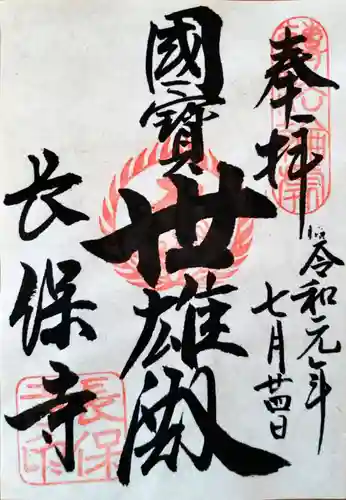 奉拝
令和元年
七月廿四日
國寶
世雄殿
長保寺